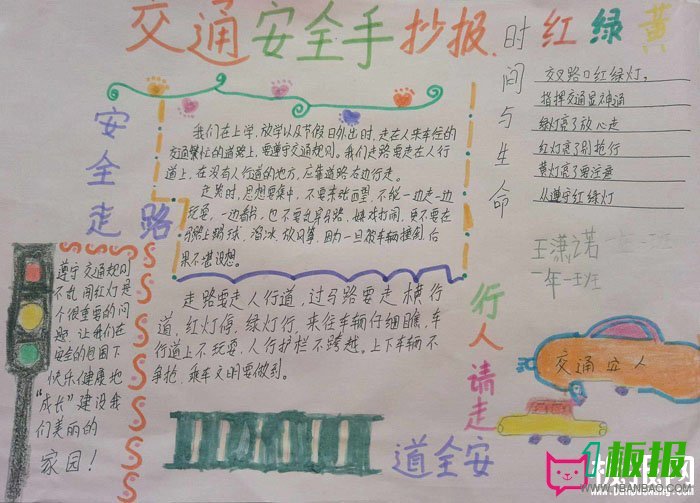 交通安全手抄报
时间与生命
红绿黄
交叉路口红绿灯,
指挥交通显神通
绿灯亮了放心走
红灯亮了别抢行
黄灯亮了要注意
人人遵守红绿灯
王潇诺
一年一班
安全走路
我们在上学,放学以及节假日外出时,走在人来车往的
交通繁忙的道路上,要遵守交通规则。我们走路要走在人行
道上,在没有人行道的地方,应靠道路右边行走。
走路时,思想要集中,不要东张西望,不能一边走一边
玩耍,一边看书,也不要乱穿马路,嬉戏打闹,更不要在
马路上踢球,溜冰,放风筝,
一旦被车辆撞到后
果不堪设想。
遵守交通规则
不乱闯红灯是
个很重要的问
题,让我们在
安全的校园下
快乐健康地
“成长”建设我
们美丽的
家园!
走路要走人行道,过马路要走横行
道,红灯停,绿灯行,来往车辆仔细瞧,车
行道上不玩耍,人行护栏不跨越。上下车辆不
争抢,乘车文明要做到。
行人请走
安全道
交通安人
1板报
WWW.1BANBAO.COM